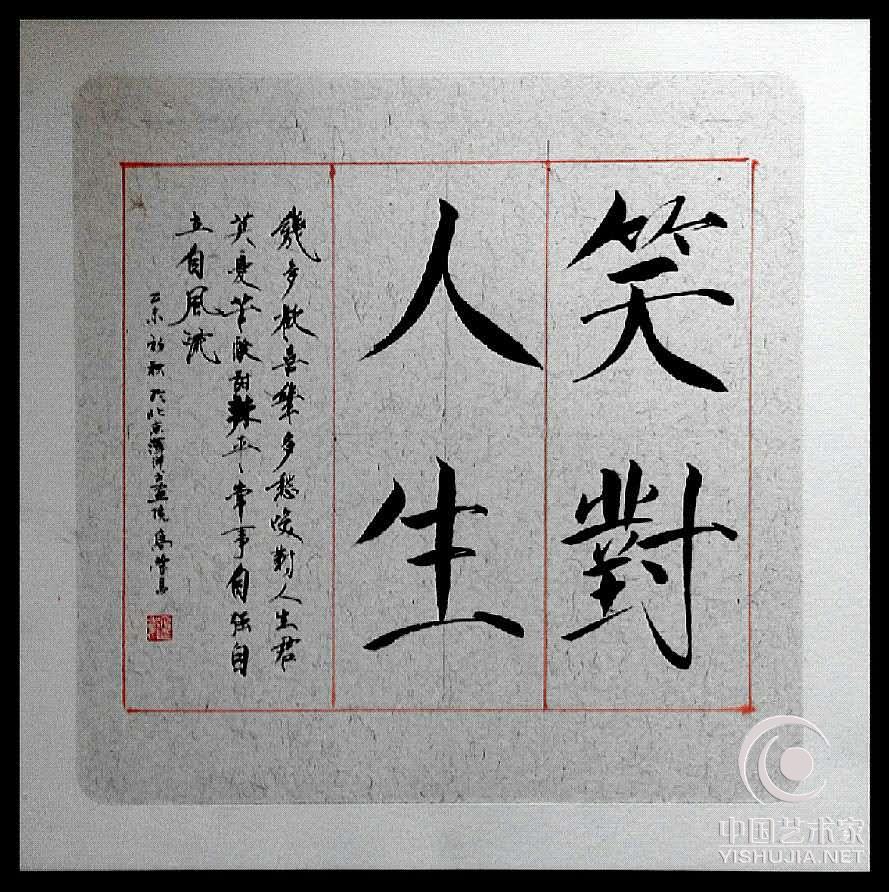 笑對
人生
幾多歡喜幾多愁笑對人生君
莫憂苦酸甜辣平常事自強自
立自風流
乙未初秋於北京
中国艺术家
YISHUJIA.NET